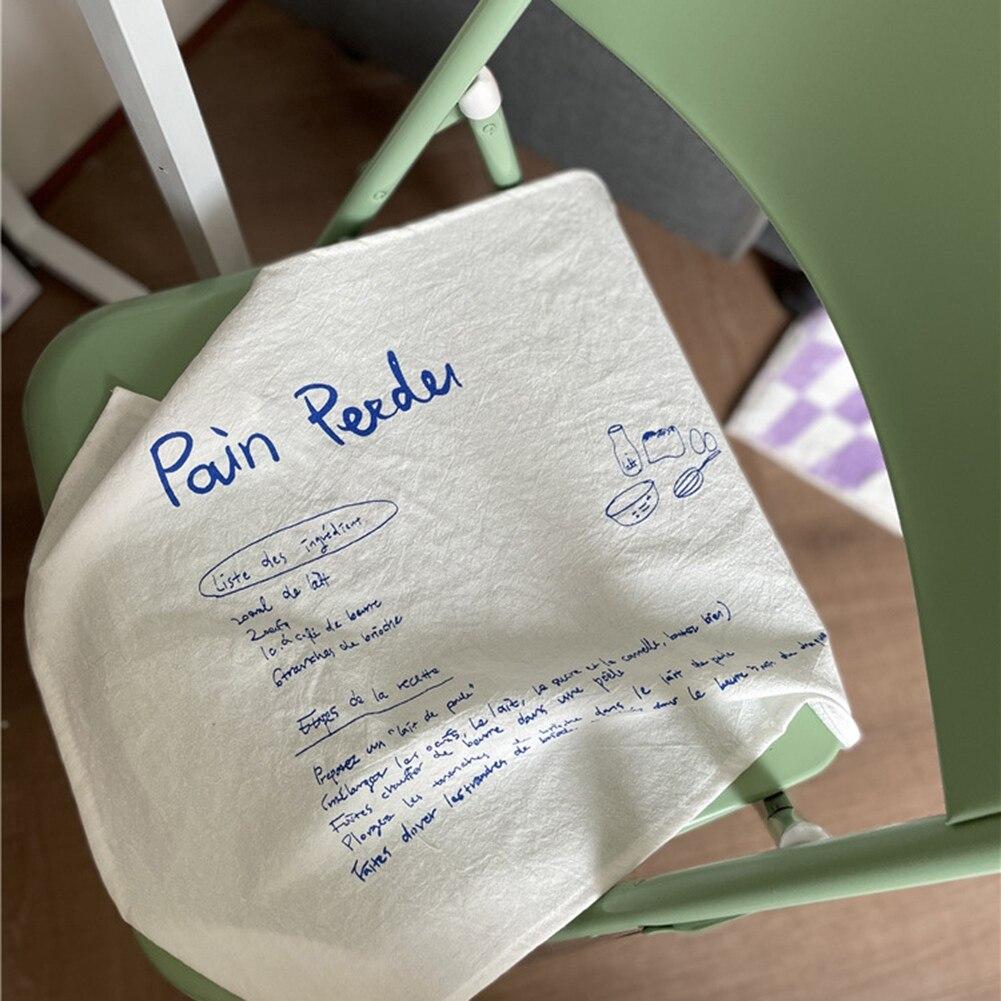 Pain Perdu
Liste des ingrédients
200ml de lait
2 oeufs
1 c.à café de beurre
6 tranches de brioche
Etapes de la recette
Préparez un "lait de poule"
(mélangez les oeufs, le lait, le sucre et la cannelle, battez bien)
Faites chauffer de beurre dans une poêle
Plongez les tranches de brioche dans le lait de poule
Faites dorer les tranches de brioche dans le beurre
lait